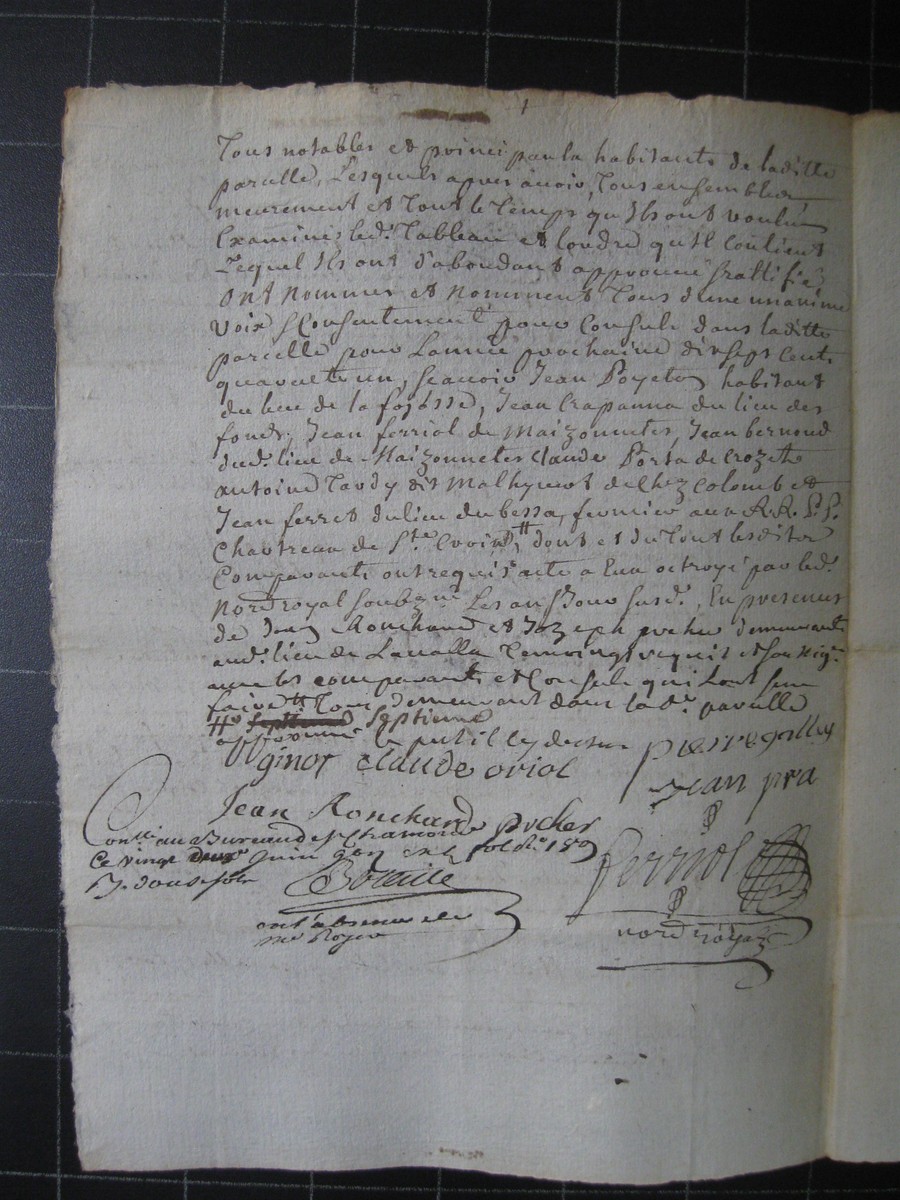 Tous notables et principaux habitants de laditte
parcelle, Lesquels apres avoir, Tous ensemble
meurement et Tout le Temps qu'Ils ont voulu
Examiné led. Tableau et lordre qu'Il Contient
Lequel Ils ont d'abondant approuvé & rattifié
Ont nommés et nomment Tous d'une unanime
voix & Consentement pour Consuls dans laditte
parcelle pour Lannée prochaine dix sept cents
quarante un, scauoir Jean Poyeton habitant
du lieu de la fojasse, Jean Crapanna du lieu des
fonds, Jean ferriol de Maizonnetes, Jean bernoud
dud. lieu de Maizonnetes Claude Porta de Crozet
antoine Tardy dit Mathevot de Chez Colomb et
Jean ferret du lieu du bessa, fermier aux R.R. P.P.
Chartreux de Ste. Croix, # dont et du Tout lesdits
Comparants ont requis acte a Eux octroyé par led.
Nore royal soubzne Les an & Jour susd. En presence
de Jean Ronchard et Jozeph pocher demeurants
aud. lieu de Lavalla Temoings requis et soussignés
avec les comparants et Consuls qui Lont sceu
faire # Tous demeurant dans lad. parcelle
# Septieme
approuvé
ginot claude oriol pierre galley
Jean pra
Jean Ronchard pocher
Conllé au Bureau de St Chamond
Ce vingt Juin 
R. douze sols
ferriol
en l'absence de
mr Royer
nore royal